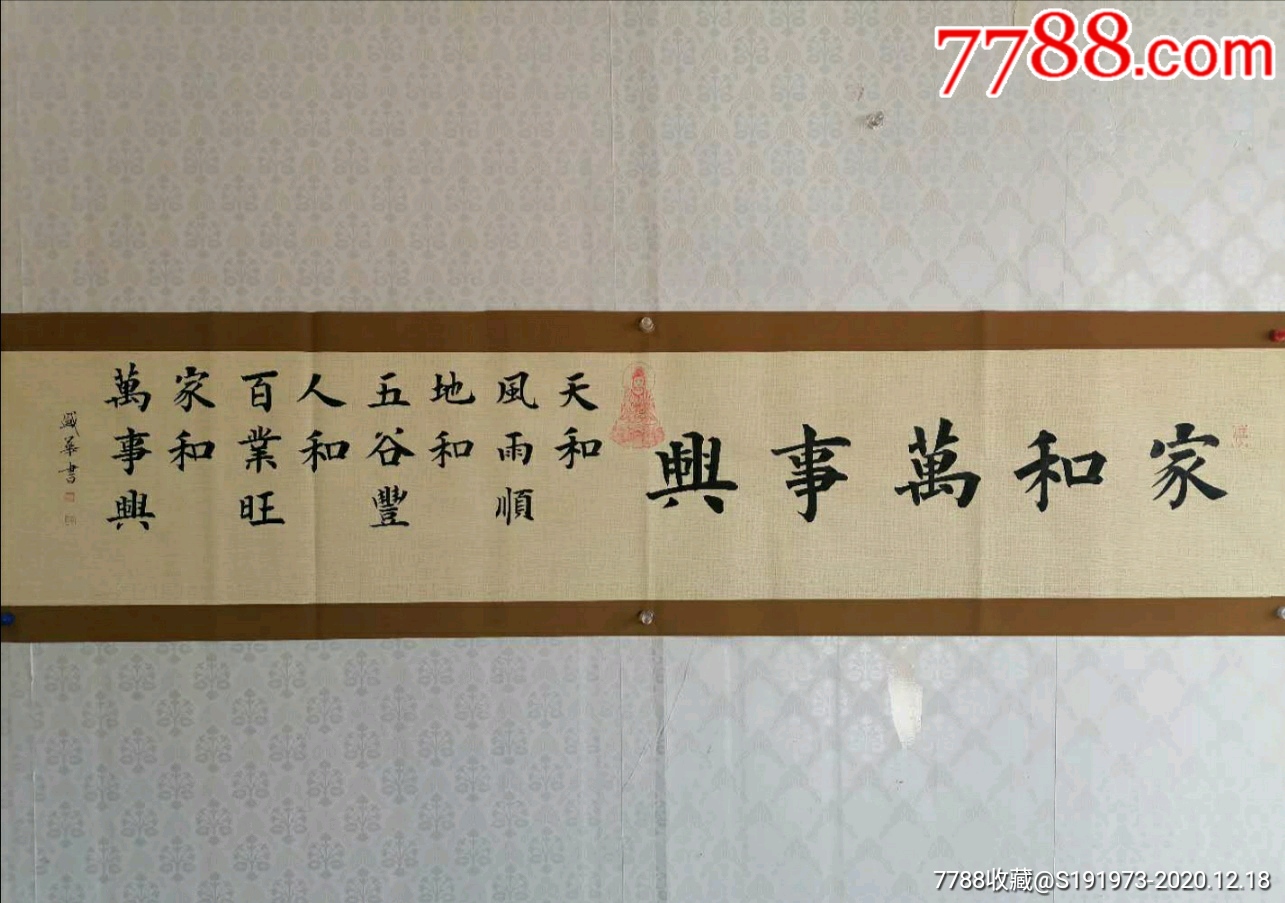 7788.com
家和萬事興
天和
風雨順
地和
五谷豐
人和
百業旺
家和
萬事興
盛華書
7788收藏@S191973-2020.12.18